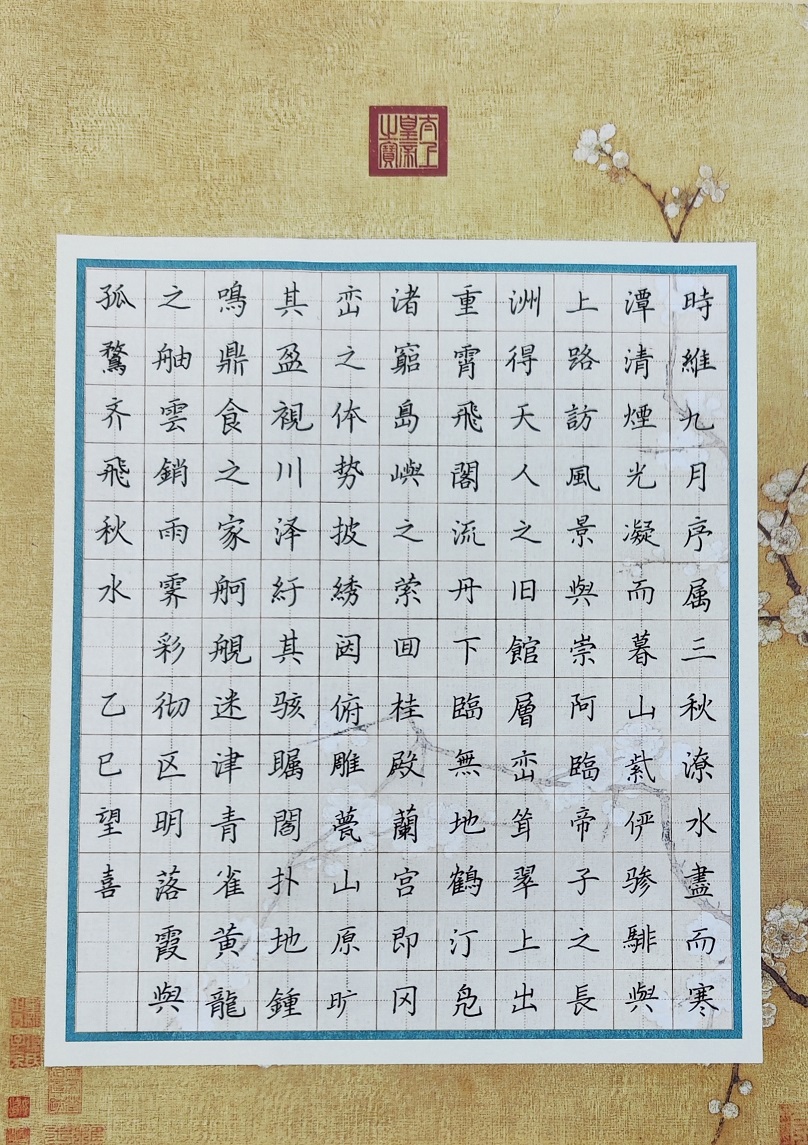 太上
皇帝
之寶
時維九月序属三秋潦水盡而寒
潭清煙光凝而暮山紫俨骖騑與
上路訪風景與崇阿臨帝子之長
洲得天人之旧館層峦耸翠上出
重霄飛閣流丹下臨無地鶴汀凫
渚窮島嶼之萦囬桂殿蘭宫即冈
峦之体势披綉闼俯雕甍山原旷
其盈視川泽紆其骇瞩閭扑地鍾
鳴鼎食之家舸舰迷津青雀黄龍
之舳雲銷雨霁彩彻区明落霞與
孤鶩齐飛秋水 乙巳望喜